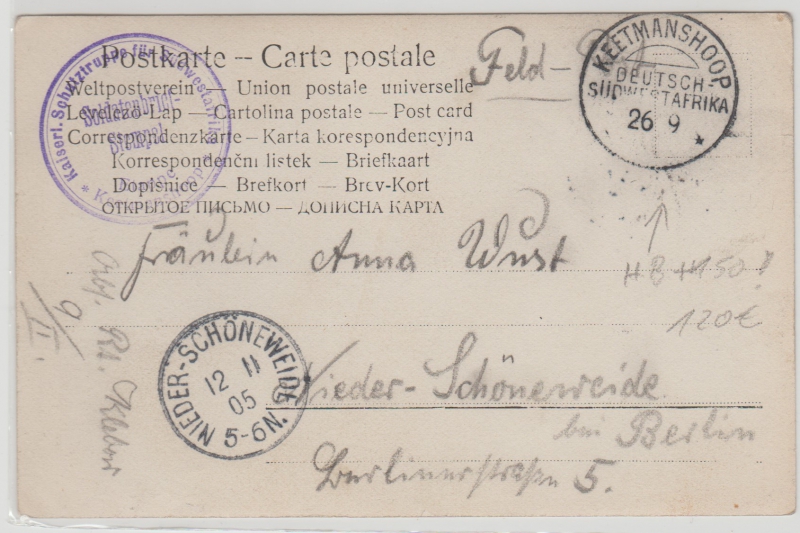 Postkarte -- Carte postale
Weltpostverein — Union postale universelle
Levelező-Lap — Cartolina postale — Post card
Correspondenzkarte — Karta korespondencyjna
Korrespondenční listek — Briefkaart
Dopisnice — Brefkort — Brev-Kort
ОТКРЫТОЕ ПИСЬМО — ДОПИСНА КАРТА
Kaiserl. Schutztruppe für Südwestafrika
Soldatenbrief
Stempel
Feld-
KEETMANSHOOP
DEUTSCH-
SÜDWESTAFRIKA
26 9
Fräulein Anna Wust
150
120€
NIEDER-SCHÖNEWEIDE
12 11
05
5-6N.
Nieder-Schöneweide
bei Berlin
Berlinerstraße 5.
9/II.